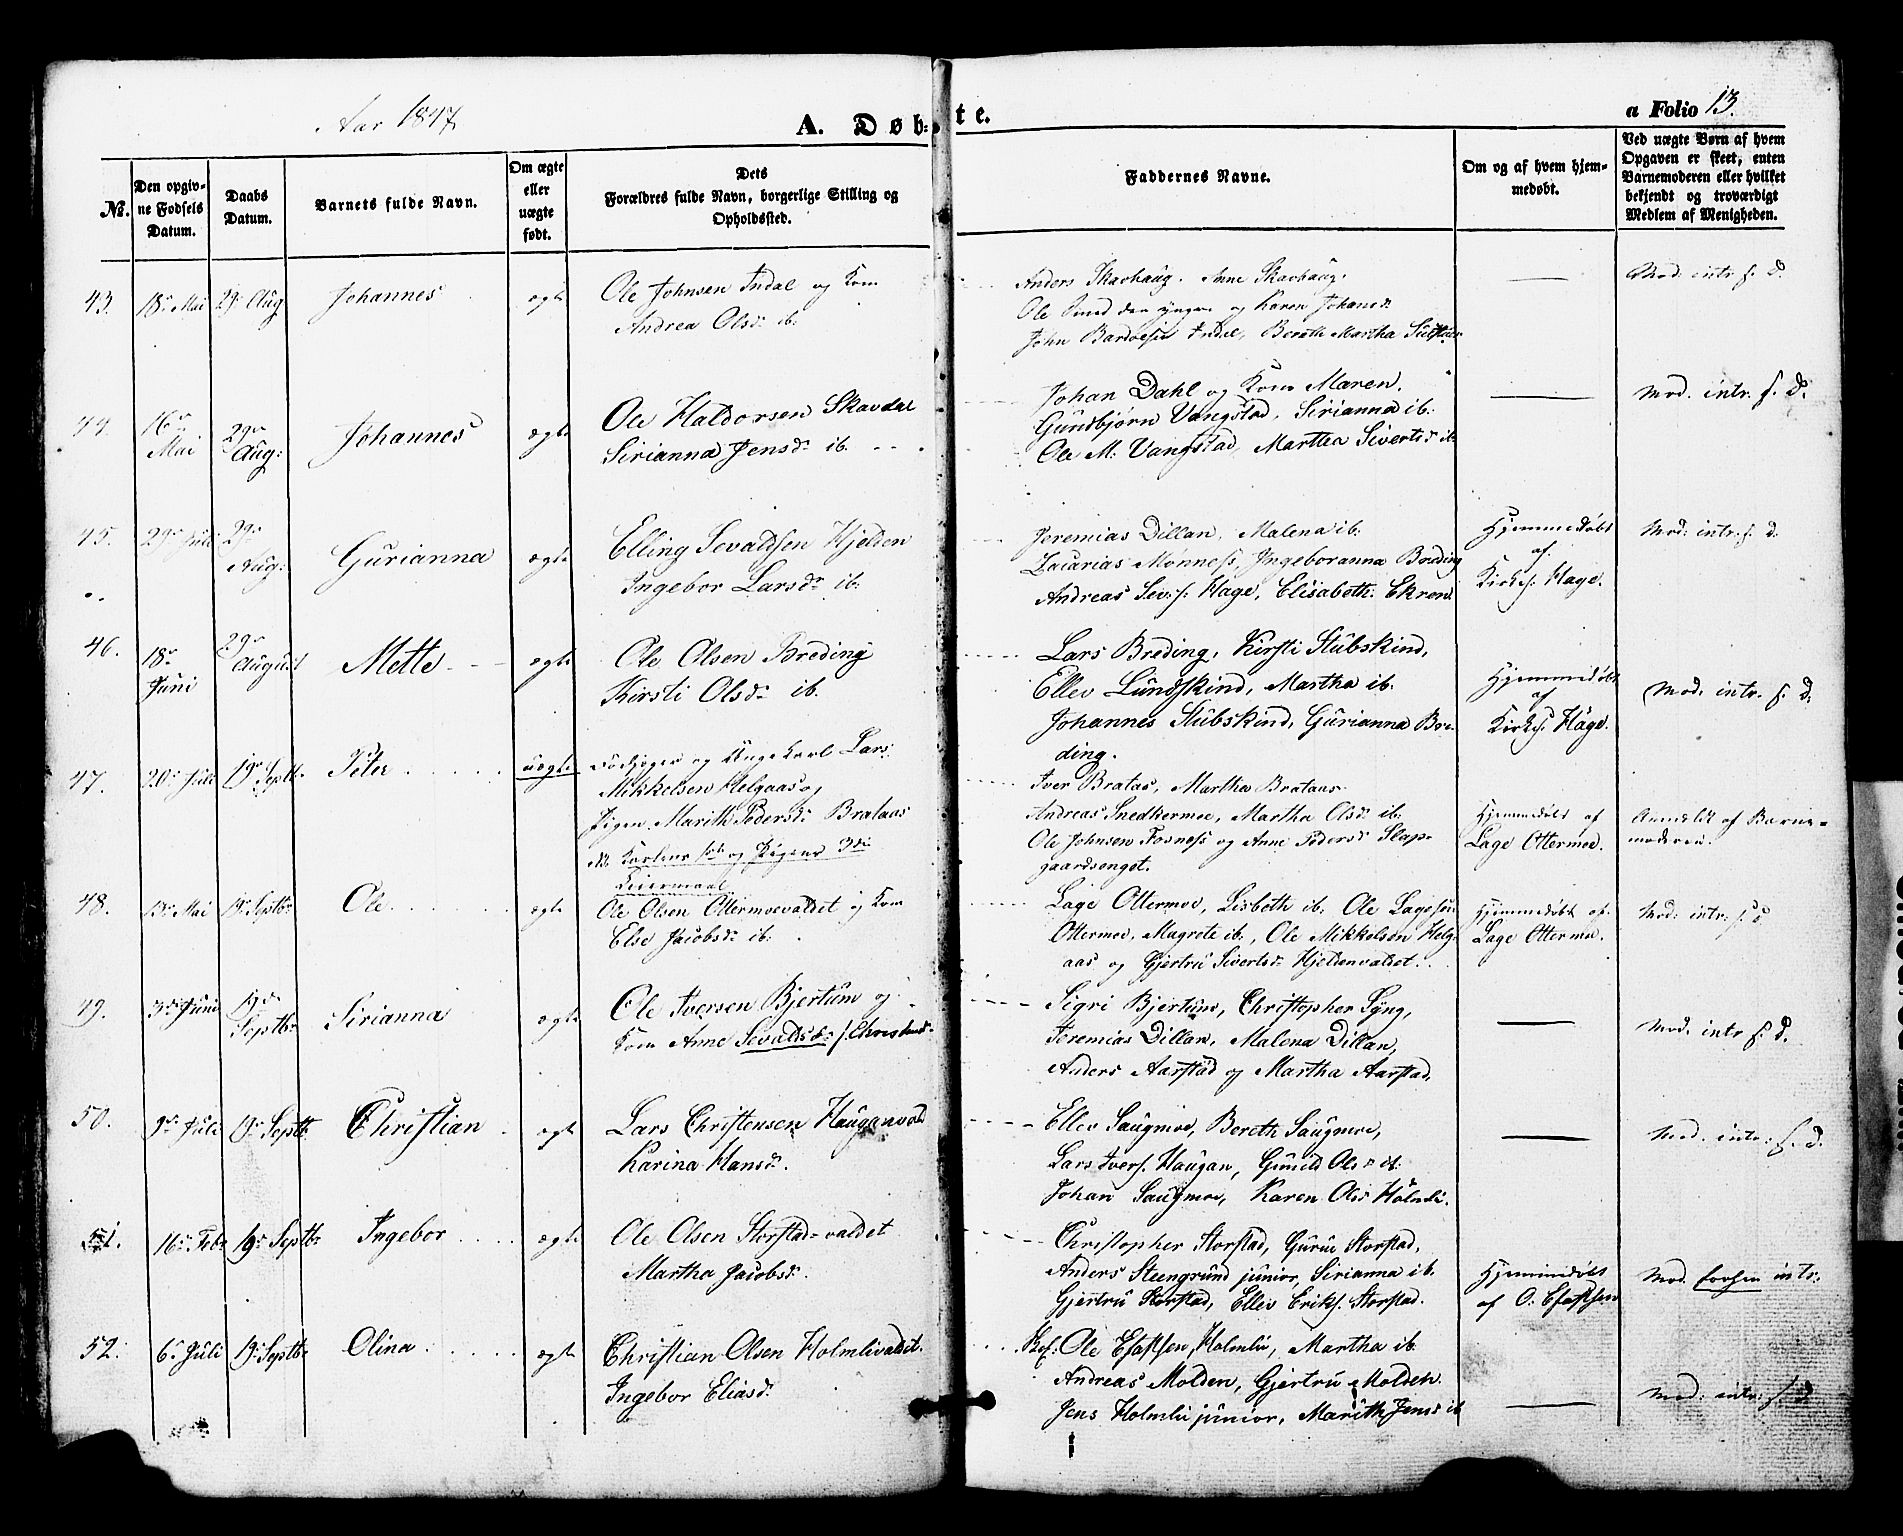 Aar 1847.
A. Døbte.
a Folio 13.
№.
Den opgiv-
ne Fødsels
Datum.
Daabs
Datum.
Barnets fulde Navn.
Om ægte
eller
uægte
født.
Dets
Forældres fulde Navn, borgerlige Stilling og
Opholdssted.
Faddernes Navne.
Om og af hvem hjem-
medøbt.
Ved uægte Børn af hvem
Opgaven er skeet, enten
Barnemoderen eller hvilket
bekjendt og troværdigt
Medlem af Menigheden.
43. 18de Mai 29de Aug Johannes ægte
Ole Johnsen Indal og Kone
Andrea Olsdr ib.
Anders Skavhaug. Anne Skavhaug.
Ole den yngre og Karen Johansdr
John Bardoesen Indal, Bereth Martha
Mod. intr. s. d.
44. 16de Mai 29de Aug: Johannes ægte
Ole Haldorsen Skavdal
Sirianna Jensdr ib.
Johan Dahl og Kone Maren.
Gundbjørn Vangstad, Sirianna ib.
Ole M. Vangstad, Marthea Sivertsdr ib
Mod. intr. s. d.
45. 29de Juli 29de Aug: Gurianna ægte
Elling Sevaldsen Hjelden
Ingebor Larsdr ib.
Jeremias Dillan, Malena ib.
Zacarias Mønness, Ingeboranna Breding
Andreas Sev: s: Hage, Elisabeth Ekren
Hjemmedøbt
af
Kirkes. Hage.
Mod: intr. s. d.
46. 18de Juni 29de August Mette ægte
Ole Olsen Breding
Kirsti Olsdr ib.
Lars Breding, Kirsti Stubskind,
Ellev Lundskind, Martha ib.
Johannes Stubskind, Gurianna Bre-
ding.
Hjemmedøbt
af
Kirkes. Hage.
Mod. intr. s. d.
47. 20de Juli 19de Septb. Peter uægte
og Ungekarl Lars
Mikkelsen Helgaas og
Pigen Marith Pedersdr Brataas
Karlens 1ste og Pigens 3die
Leiermaal
Iver Brataas, Martha Brataas
Andreas Snedkermoe, Martha Olsdr ib.
Ole Johnsen Fosness og Anne Pedersdr Slap-
gaardsenget.
Hjemmedøbt af
Lage Ottermoe.
Anmeldt af Barne-
moderen.
48. 13de Mai 19de Septbr Ole ægte
Ole Olsen Ottermoevaldet og Kone
Else Jacobsdr ib.
Lage Ottermoe, Lisbeth ib. Ole Lagesen
Ottermoe, Magrete ib., Ole Mikkelsen Helg-
aas og Gjertru Sivertsdr Hjeldenvaldet.
Hjemmedøbt af
Lage Ottermoe.
Mod: intr. s. d.
49. 3de Juni 19de Septbr Sirianna ægte
Ole Iversen Bjertum og
Kone Anne Sevaldsdr
Sigri Bjertum, Christopher Lyng,
Jeremias Dillan, Malena Dillan,
Anders Aarstad og Martha Aarstad,
Mod. intr s. d.
50. 9de Juli 19de Septb. Christian ægte
Lars Christensen Hauganvald
Karina Hansdr.
Ellev Saugmoe, Bereth Saugmoe,
Lars Ivers. Haugan, Gunild Olsdr ib.
Johan Saugmoe, Karen Olsdr Holmli.
Mod. intr: s. d.
51. 16de Febr 19de Septbr Ingebor ægte
Ole Olsen Storstad-valdet
Martha Jacobsdr.
Christopher Storstad, Guru Storstad,
Anders Steengrund junior, Sirianna ib.
Gjertru Storstad, Ellev Eriks. Storstad.
Hjemmedøbt
af O. Efastsen
Mod. forhen intr.
52. 6te Juli 19de Septbr Olina ægte
Christian Olsen Holmlivaldet.
Ingebor Eliasdr
Ole Efastsen Holmli, Martha ib
Andreas Molden, Gjertru Molden.
Jens Holmli junior, Marith Jensdr ib
Mod: intr: s. d